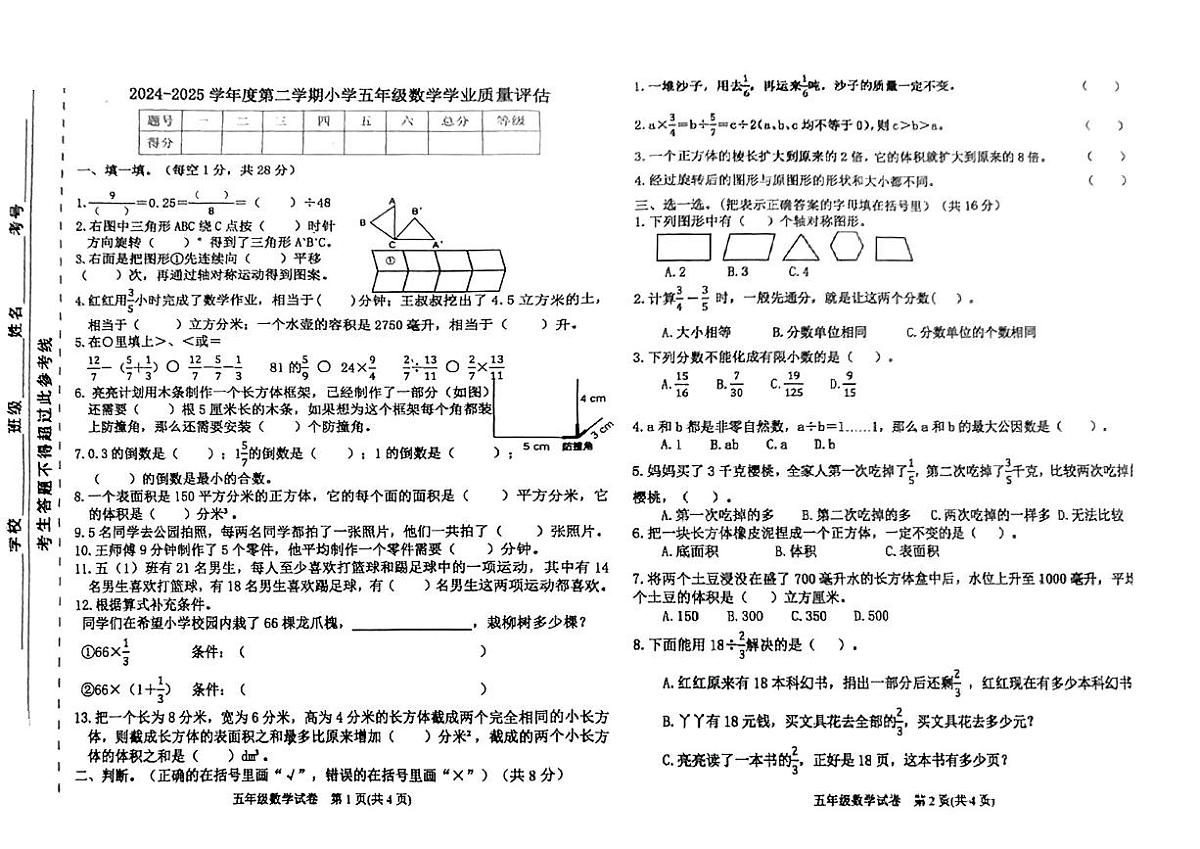 学校 班级 姓名 考号
考生答题不得超过此参考线
2024-2025 学年度第二学期小学五年级数学学业质量评估
题号 一 二 三 四 五 六 总分 等级
得分
一、填一填。（每空 1 分，共 28 分）
1. 9/(  ) =0.25= (  )/8 =（  ）÷48
2. 右图中三角形 ABC 绕 C 点按（  ）时针
方向旋转（  ）°得到了三角形 A'B'C。
A B B' C A'
3. 右面是把图形①先连续向（  ）平移
（  ）次，再通过轴对称运动得到图案。
①
4. 红红用3/5小时完成了数学作业，相当于（  ）分钟；王叔叔挖出了 4.5 立方米的土，
相当于（  ）立方分米；一个水壶的容积是 2750 毫升，相当于（  ）升。
5. 在○里填上>、<或=
12/7-（5/7+1/3）○ 12/7-5/7-1/3  81 的5/9 ○ 24×9/4  2/7÷13/11 ○ 2/7×13/11
6. 亮亮计划用木条制作一个长方体框架，已经制作了一部分（如图）
还需要（  ）根 5 厘米长的木条，如果想为这个框架每个角都装
上防撞角，那么还需要安装（  ）个防撞角。
4 cm
3 cm
5 cm 防撞角
7. 0.3 的倒数是（  ）；1 5/7的倒数是（  ）；1 的倒数是（  ）；
（  ）的倒数是最小的合数。
8. 一个表面积是 150 平方分米的正方体，它的每个面的面积是（  ）平方分米，它
的体积是（  ）分米³。
9. 5 名同学去公园拍照，每两名同学都拍了一张照片，他们一共拍了（  ）张照片。
10. 王师傅 9 分钟制作了 5 个零件，他平均制作一个零件需要（  ）分钟。
11. 五（1）班有 21 名男生，每人至少喜欢打篮球和踢足球中的一项运动，其中有 14
名男生喜欢打篮球，有 18 名男生喜欢踢足球，有（  ）名男生这两项运动都喜欢。
12. 根据算式补充条件。
同学们在希望小学校园内栽了 66 棵龙爪槐，____________，栽柳树多少棵？
①66×1/3  条件：（  ）
②66×（1+1/3）  条件：（  ）
13. 把一个长为 8 分米，宽为 6 分米，高为 4 分米的长方体截成两个完全相同的小长方
体，则截成长方体的表面积之和最多比原来增加（  ）分米²，截成的两个小长方
体的体积之和是（  ）dm³。
二、判断。（正确的在括号里画“√”，错误的在括号里画“×”）（共 8 分）
五年级数学试卷 第 1 页(共 4 页)
1. 一堆沙子，用去1/6，再运来1/6吨，沙子的质量一定不变。（  ）
2. a×3/4=b÷5/7=c÷2(a、b、c 均不等于 0)，则 c>b>a。（  ）
3. 一个正方体的棱长扩大到原来的 2 倍，它的体积就扩大到原来的 8 倍。（  ）
4. 经过旋转后的图形与原图形的形状和大小都不同。（  ）
三、选一选。（把表示正确答案的字母填在括号里）（共 16 分）
1. 下列图形中有（  ）个轴对称图形。
A. 2 B. 3 C. 4
2. 计算3/4-3/5 时，一般先通分，就是让这两个分数（  ）。
A. 大小相等 B. 分数单位相同 C. 分数单位的个数相同
3. 下列分数不能化成有限小数的是（  ）。
A. 15/16 B. 7/30 C. 19/125 D. 9/15
4. a 和 b 都是非零自然数，a÷b=1……1，那么 a 和 b 的最大公因数是（  ）。
A. 1 B. ab C. a D. b
5. 妈妈买了 3 千克樱桃，全家人第一次吃掉了1/5，第二次吃掉了3/5千克，比较两次吃掉
樱桃，（  ）。
A. 第一次吃掉的多 B. 第二次吃掉的多 C. 两次吃掉的一样多 D. 无法比较
6. 把一块长方体橡皮泥捏成一个正方体，一定不变的是（  ）。
A. 底面积 B. 体积 C. 表面积
7. 将两个土豆浸没在盛了 700 毫升水的长方体盒中后，水位上升至 1000 毫升，平均
个土豆的体积是（  ）立方厘米。
A. 150 B. 300 C. 350 D. 500
8. 下面能用 18÷2/3解决的是（  ）。
A. 红红原来有 18 本科幻书，捐出一部分后还剩2/3，红红现在有多少本科幻书
B. 丫丫有 18 元钱，买文具花去全部的2/3，买文具花去多少元？
C. 亮亮读了一本书的2/3，正好是 18 页，这本书有多少页？
五年级数学试卷 第 2 页(共 4 页)